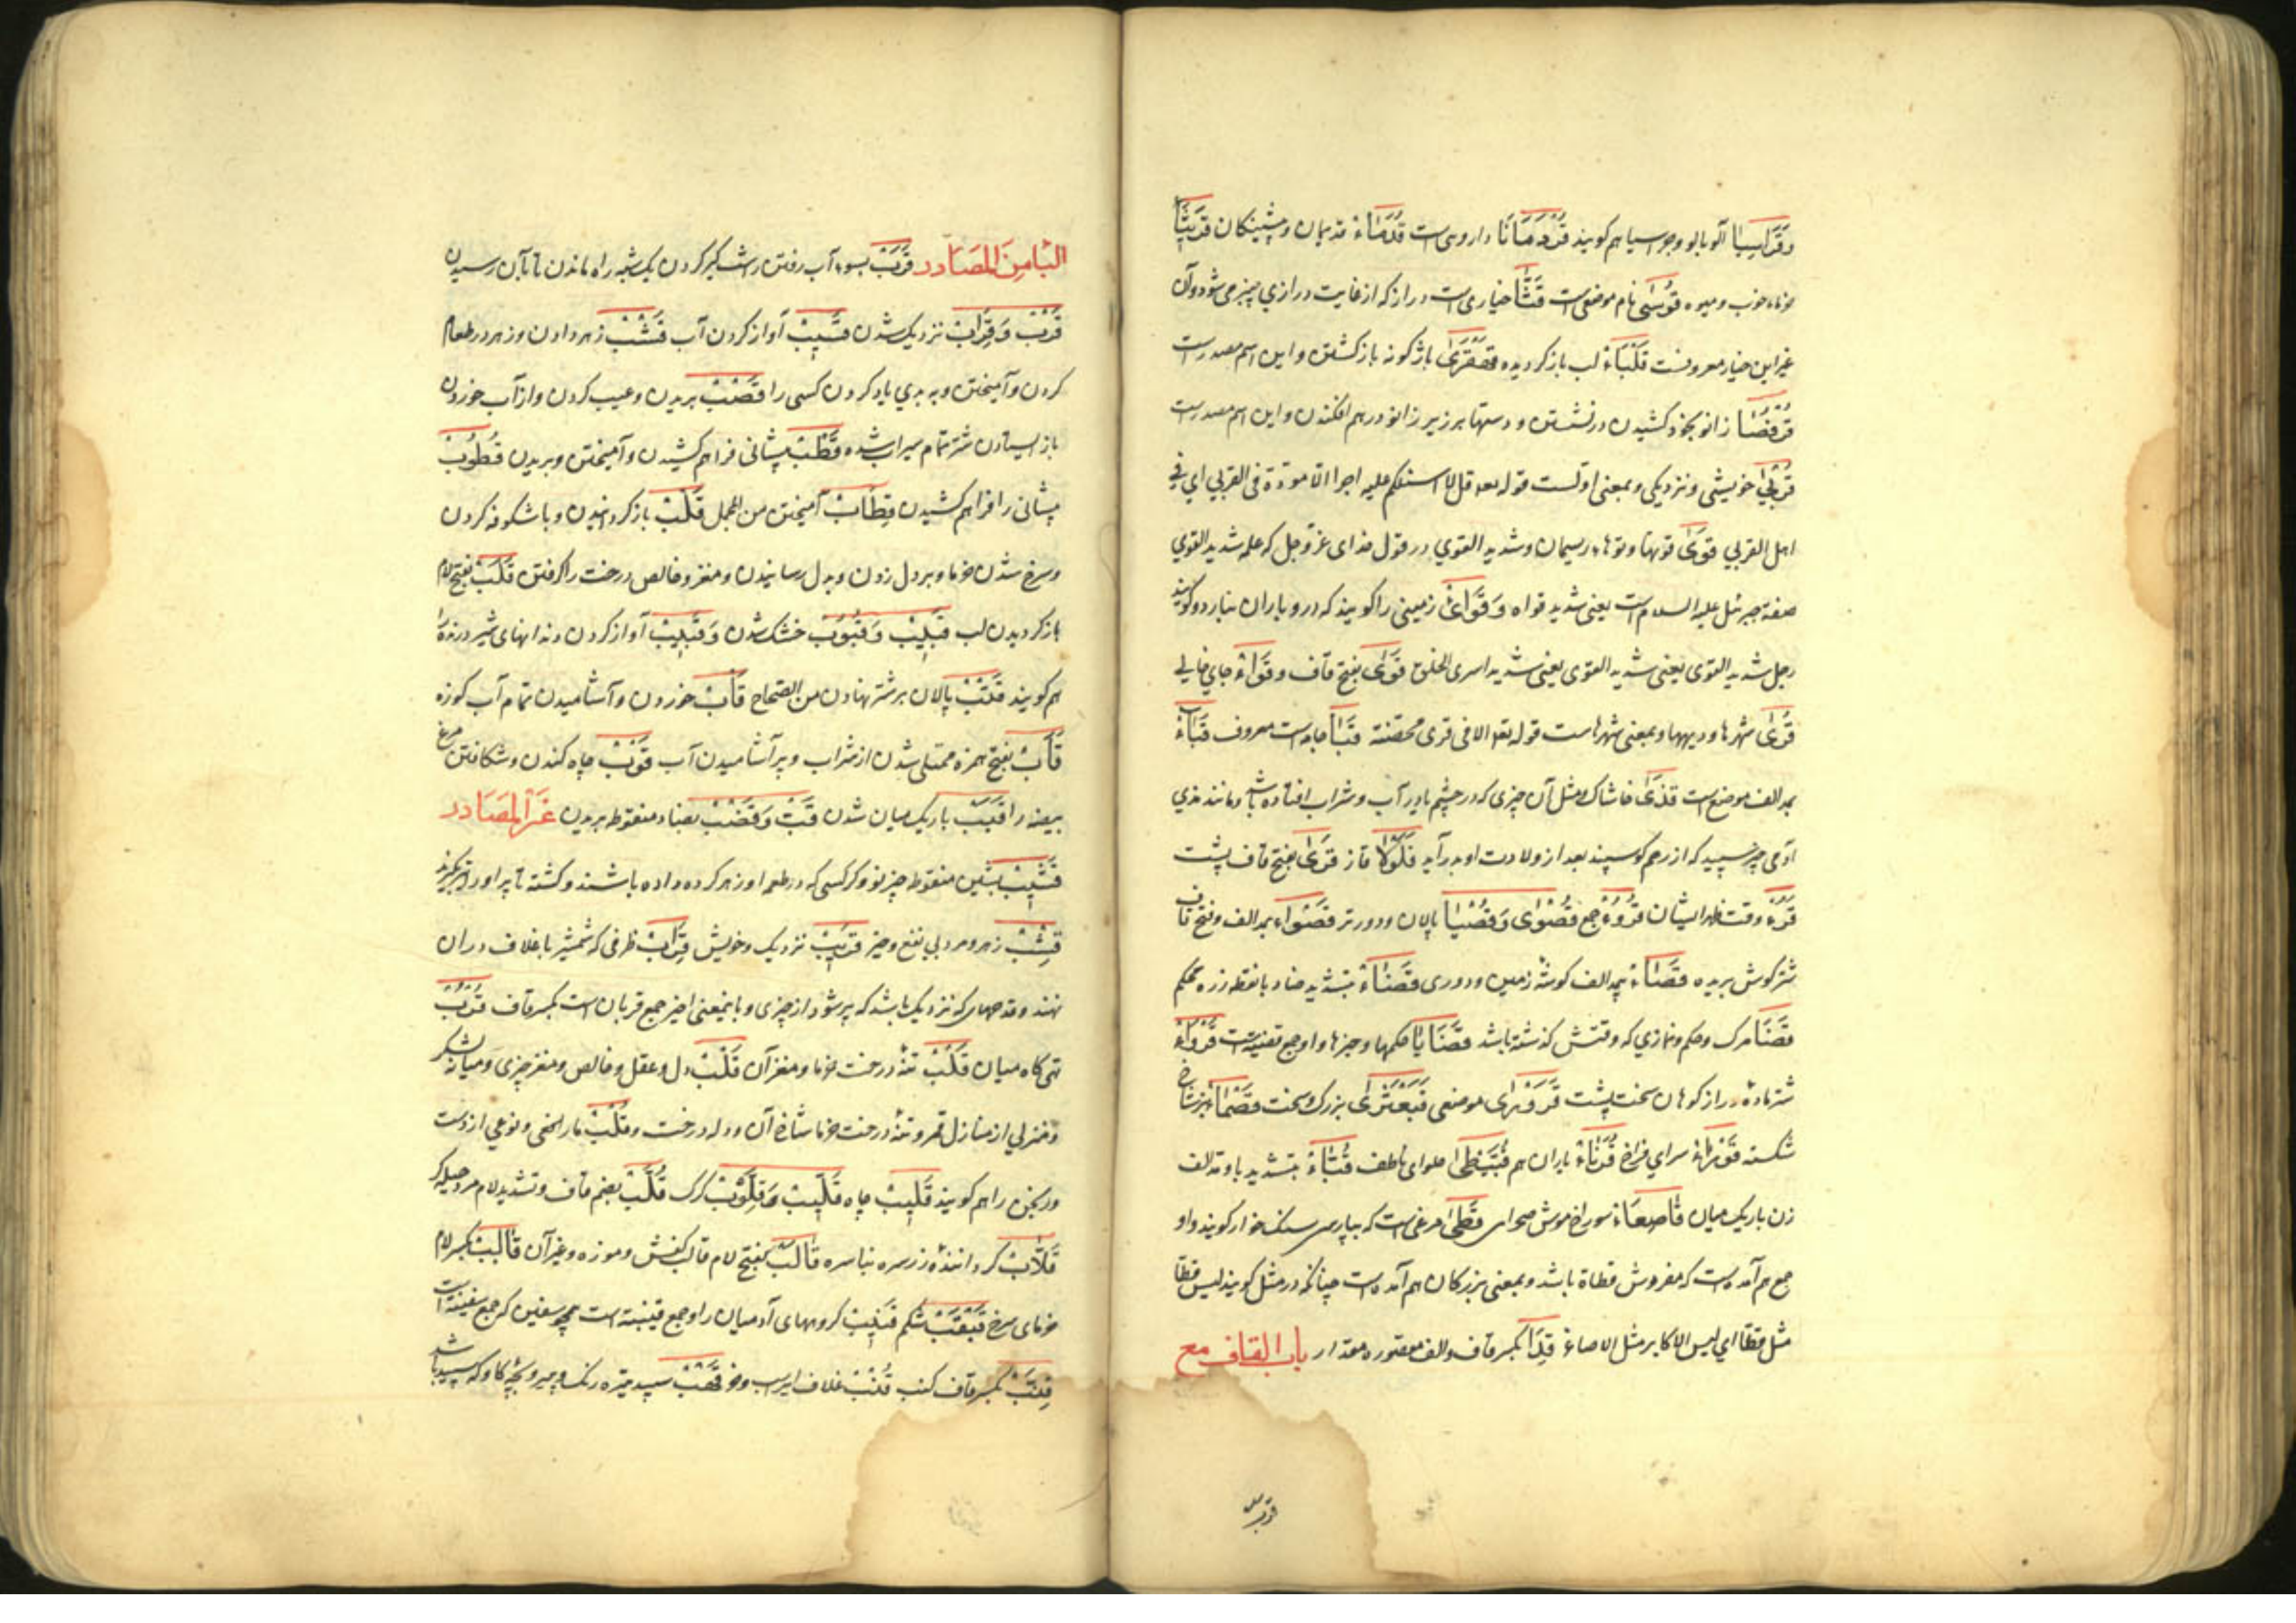 وَقَرَاسِیَا آلوبالو وجو سیاهم کویند قُردُمَانَا داروی است قُدَمَاءُ قدیمان و پیشینکان قَرِیثَا
خرماء خوب و میوه قَوْسیٰ نام موضعی است قَثَّا خیاری است دراز که از غایت درازی چنبر می شود و آن
غیر این خیار معروفست قَلْبَاءُ لب باز کردیده قَهْقَرَیٰ باژکونه باز کشتن و این اسم مصدر است
قُرْفُصَا زانو بخود کشیدن در نشستن و دستها بر زیر زانو در هم افکندن و این اسم مصدر است
قُرْبیٰ خویشی و نزدیکی و بمعنی اولست قوله تعه قل لا اسئلکم علیه اجرا الا مودة فی القربی ای فی
اهل القربی قُوَیٰ قوتها و توهاء ریسمان و شدید القوی در قول خدای عز و جل که علمه شدید القوی
صفة جبرئیل علیه السلام است یعنی شدید قواه وَقَوَاءُ زمینی را کویند که در و باران نبارد و کویند
رجل شدید القوی یعنی شدید القوی یعنی شدید اسری الخلق قَوَیٰ بفتح قاف و قَوَاءُ جای خالی
قُرَیٰ شهرها و دیهها و بمعنی شهرهاست قوله تعه الا فی قری محصنة قَبَا جامه است معروف قُبَاءُ
بمد الف موضع است قَذَیٰ خاشاک و مثل آن چیزی که در چشم یا در آب و شراب افتاده باشد و مانند مذی
آدمی چیز سپید که از رحم کوسپند بعد از ولادت او بدر آید قَلَوْلَا قاز قَرَیٰ بفتح قاف پشت
قَرْءُ وقت طهر ایشان قُرُوءُ جمع قُصْوَیٰ وَقُصْیَا پالان و دورتر قَصْوَاءُ بمد الف و فتح قاف
شتر کوش بریده قَصَاءُ بمد الف کوشهٔ زمین و دوری قَضَّاءُ بتشدید ضاد با نقطه زره محکم
قَضَا مرک و حکم و نمازی که وقتش کذشته باشد قَضَایَا حکمها و چیزها و او جمع قضیه است قَرْوَاءُ
شتر ماده دراز کوهان سخت پشت قَرَوْرَیٰ موضعی قَبَعْثَرَیٰ بزرک و سخت قَصْمَا بز شاخ
شکسته قَوْرَاءُ سرای فراخ قُرَنَاءُ یاران هم قُبَّیْطَیٰ حلوای ناطف قَبَّاءُ بتشدید با و مد الف
زن باریک میان قَاصِعَاءُ سوراخ موش صحرای قَطَیٰ مرغی است که بپارسی سنک خوار کویند و او
جمع هم آمده است که مفردش قطاة باشد و بمعنی بزرکان هم آمده است چنانکه در مثل کویند لیس قطا
مثل قطا ای لیس الاکابر مثل الاصاغر قِدَا بکسر قاف و الف مقصوره مقدار باب القاف مع
الْبَا مِنَ الْمَصَادِر قَرَبَ بسوء آب رفتن و شمشیر کردن یک شبه راه ماندن تا بآن رسیدن
قُرْبٌ وَقِرَابٌ نزدیک شدن قَسِیبٌ آواز کردن آب قَشْبٌ زهر دادن و زهر در طعام
کردن و آمیختن و به بدی یاد کردن کسی را قَصْبٌ بریدن و عیب کردن و از آب خوردن
باز ایستادن شتر تمام سیراب شده قَطْبٌ پیشانی فراهم کشیدن و آمیختن و بریدن قُطُوبٌ
پیشانی را فراهم کشیدن قِطَابٌ آمیختن من المجمل قَلْبٌ باز کردانیدن و باشکونه کردن
و سرخ شدن خرما و بر دل زدن و بدل رسانیدن و مغز و خالص درخت را کرفتن قَلَبٌ بفتح لام
باز کردیدن لب قَبِیبٌ وَقُبُوبٌ خشک شدن وَقَبِیبٌ آواز کردن دندانهای شیر درنده را
هم کویند قَتْبٌ پالان بر شتر نهادن من الصحاح قَأْبٌ خوردن و آشامیدن تمام آب کوزه
قَأَبٌ بفتح همزه ممتلی شدن از شراب و پر آشامیدن آب قَوْبٌ چاه کندن و شکافتن مرغ
بیضه را قَبَبٌ باریک میان شدن قَبٌّ وَقَضْبٌ بضاد منقوطه بریدن غَیْرُ الْمَصَادِر
قَشِیبٌ بشین منقوطه چیز نو و کرکسی که در طعم او زهر کرده داده باشند و کشته تا پر او را برکیرند
قِشْبٌ زهر و مرد بی نفع و چیز قَرِیبٌ نزدیک و خویش قِرَابٌ ظرفی که شمشیر با غلاف در آن
نهند و قدحهای که نزدیک باشد که پر شود از چیزی و با ینمعنی اخیر جمع قربان است بکسر قاف قُرْبٌ
تهی کاه میان قَلْبٌ تنهٔ درخت خرما و مغز آن قَلْبٌ دل و عقل و خالص و مغز چیزی و میانهٔ لشکر
و منزلی از منازل قمر و تنهٔ درخت خرما شاخ آن و دله درخت و قُلْبٌ مار افعی و نوعی از دست
ورنجن را هم کویند قَلِیبٌ چاه قِلِّیبٌ وَقِلَّوْبٌ کرک قُلَّبٌ بضم قاف و تشدید لام مرد حیله کر
قَلَّابٌ کرداننده زر سره بنا سره قَالَبٌ بفتح لام قالب کفش و موزه و غیر آن قَالِبٌ بکسر لام
خرمای سرخ قَبْقَبٌ شکم قَنِیبٌ کروههای آدمیان را و جمع قنیبة است همچو سفین که جمع سفینة است
قِنَّبٌ بکسر قاف کنب قُنْبٌ غلاف ایر اسب و خر قَهْبٌ سپید تیره رنک و پیر و بچه کاو که سپید باشد